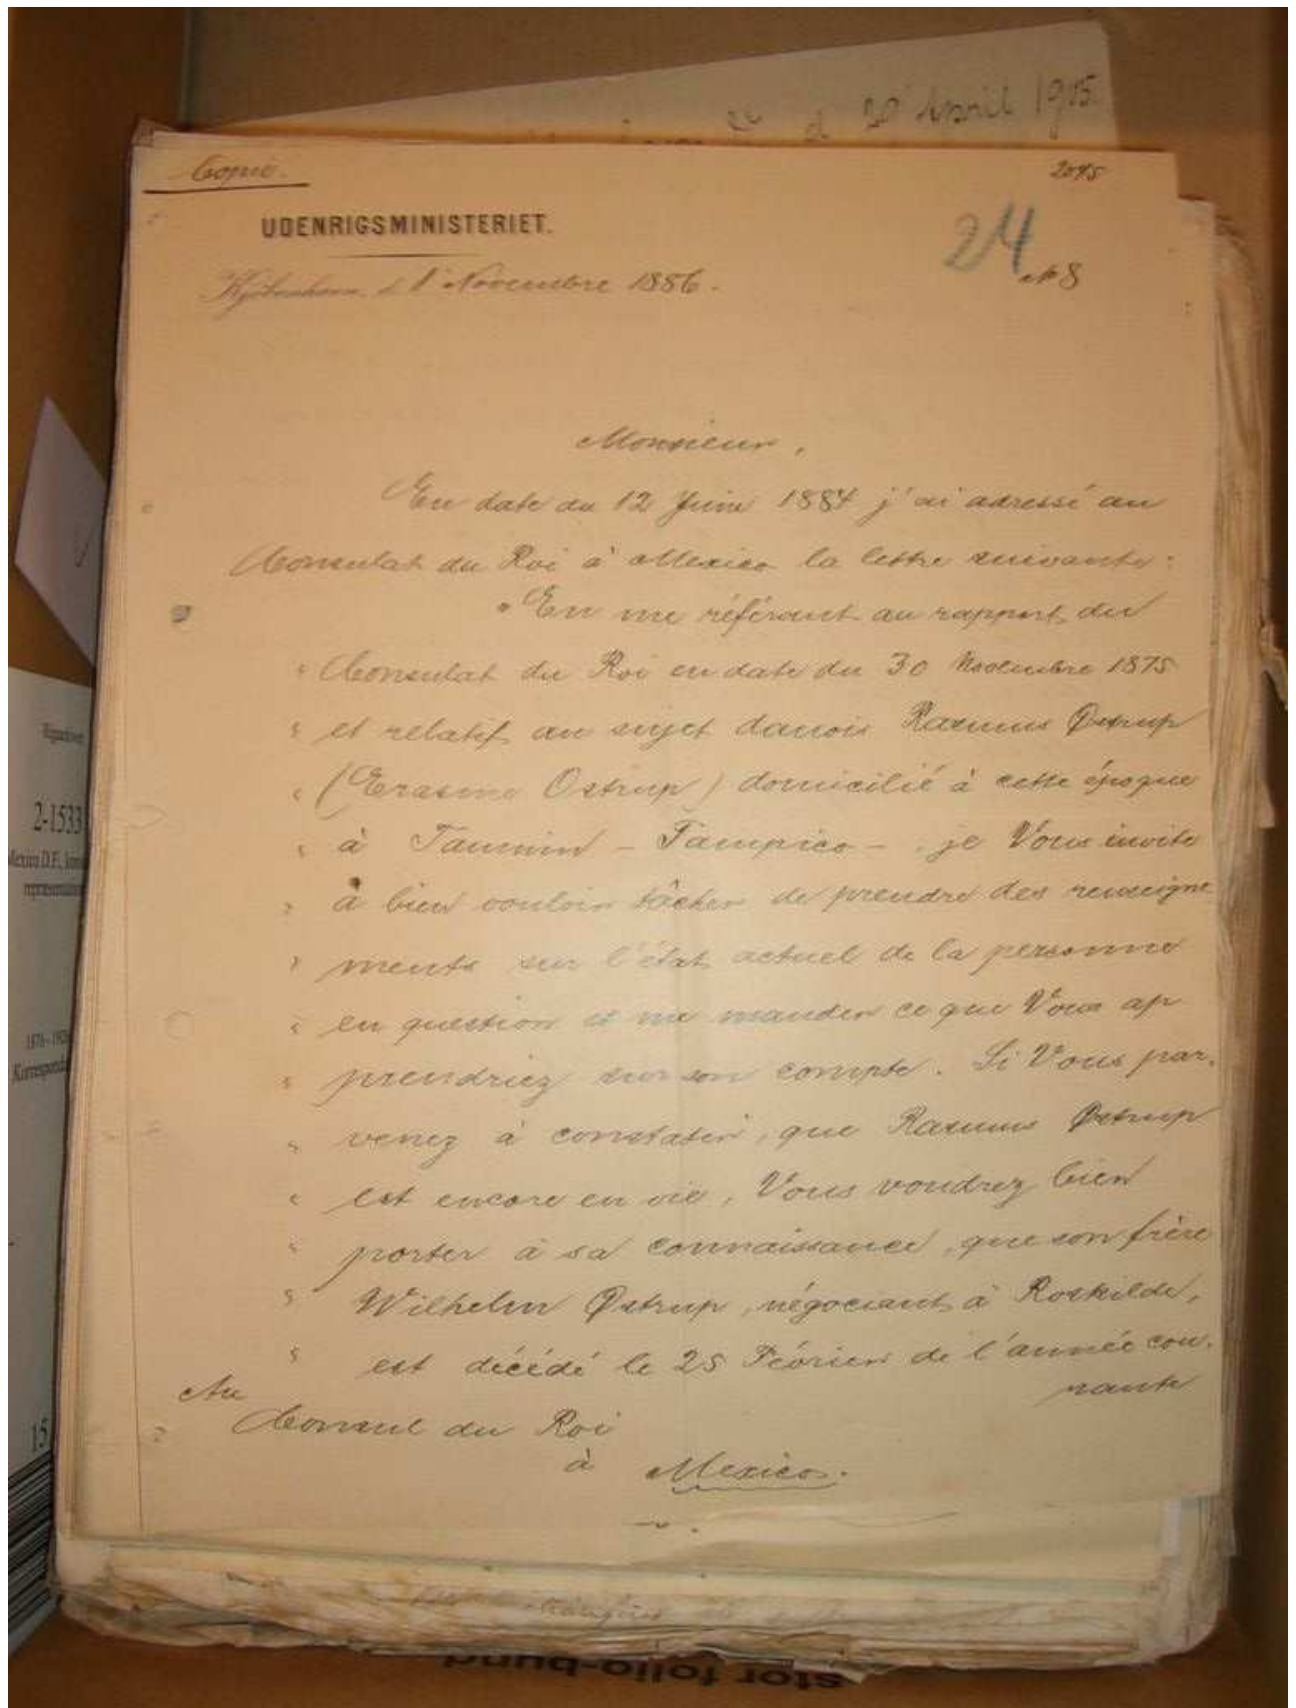 20 April 1905.
Copie.
2045
UDENRIGSMINISTERIET.
24
No 8
Kjøbenhavn, d. 1 Novembre 1886.
Monsieur,
En date du 12 Juin 1884 j'ai adressé au
Consulat du Roi à Mexico la lettre suivante:
"En me référant au rapport du
" Consulat du Roi en date du 30 Novembre 1875
" et relatif au sujet danois Rasmus Østrup
" (Erasmo Ostrup) domicilié à cette époque
" à Tanmin - Tampico -, je Vous invite
" à bien vouloir tâcher de prendre des renseigne
" ments sur l'état actuel de la personne
" en question et me mander ce que Vous ap
" prendriez sur son compte. Si Vous par-
" venez à constater, que Rasmus Østrup
" est encore en vie, Vous voudrez bien
" porter à sa connaissance, que son frère
" Wilhelm Østrup, négociant à Roskilde,
" est décédé le 25 Février de l'année cou-
rante
Au
Consul du Roi
à Mexico.
2-1533
Mexico D.F.,
Korresponda
15
stor folio-bund